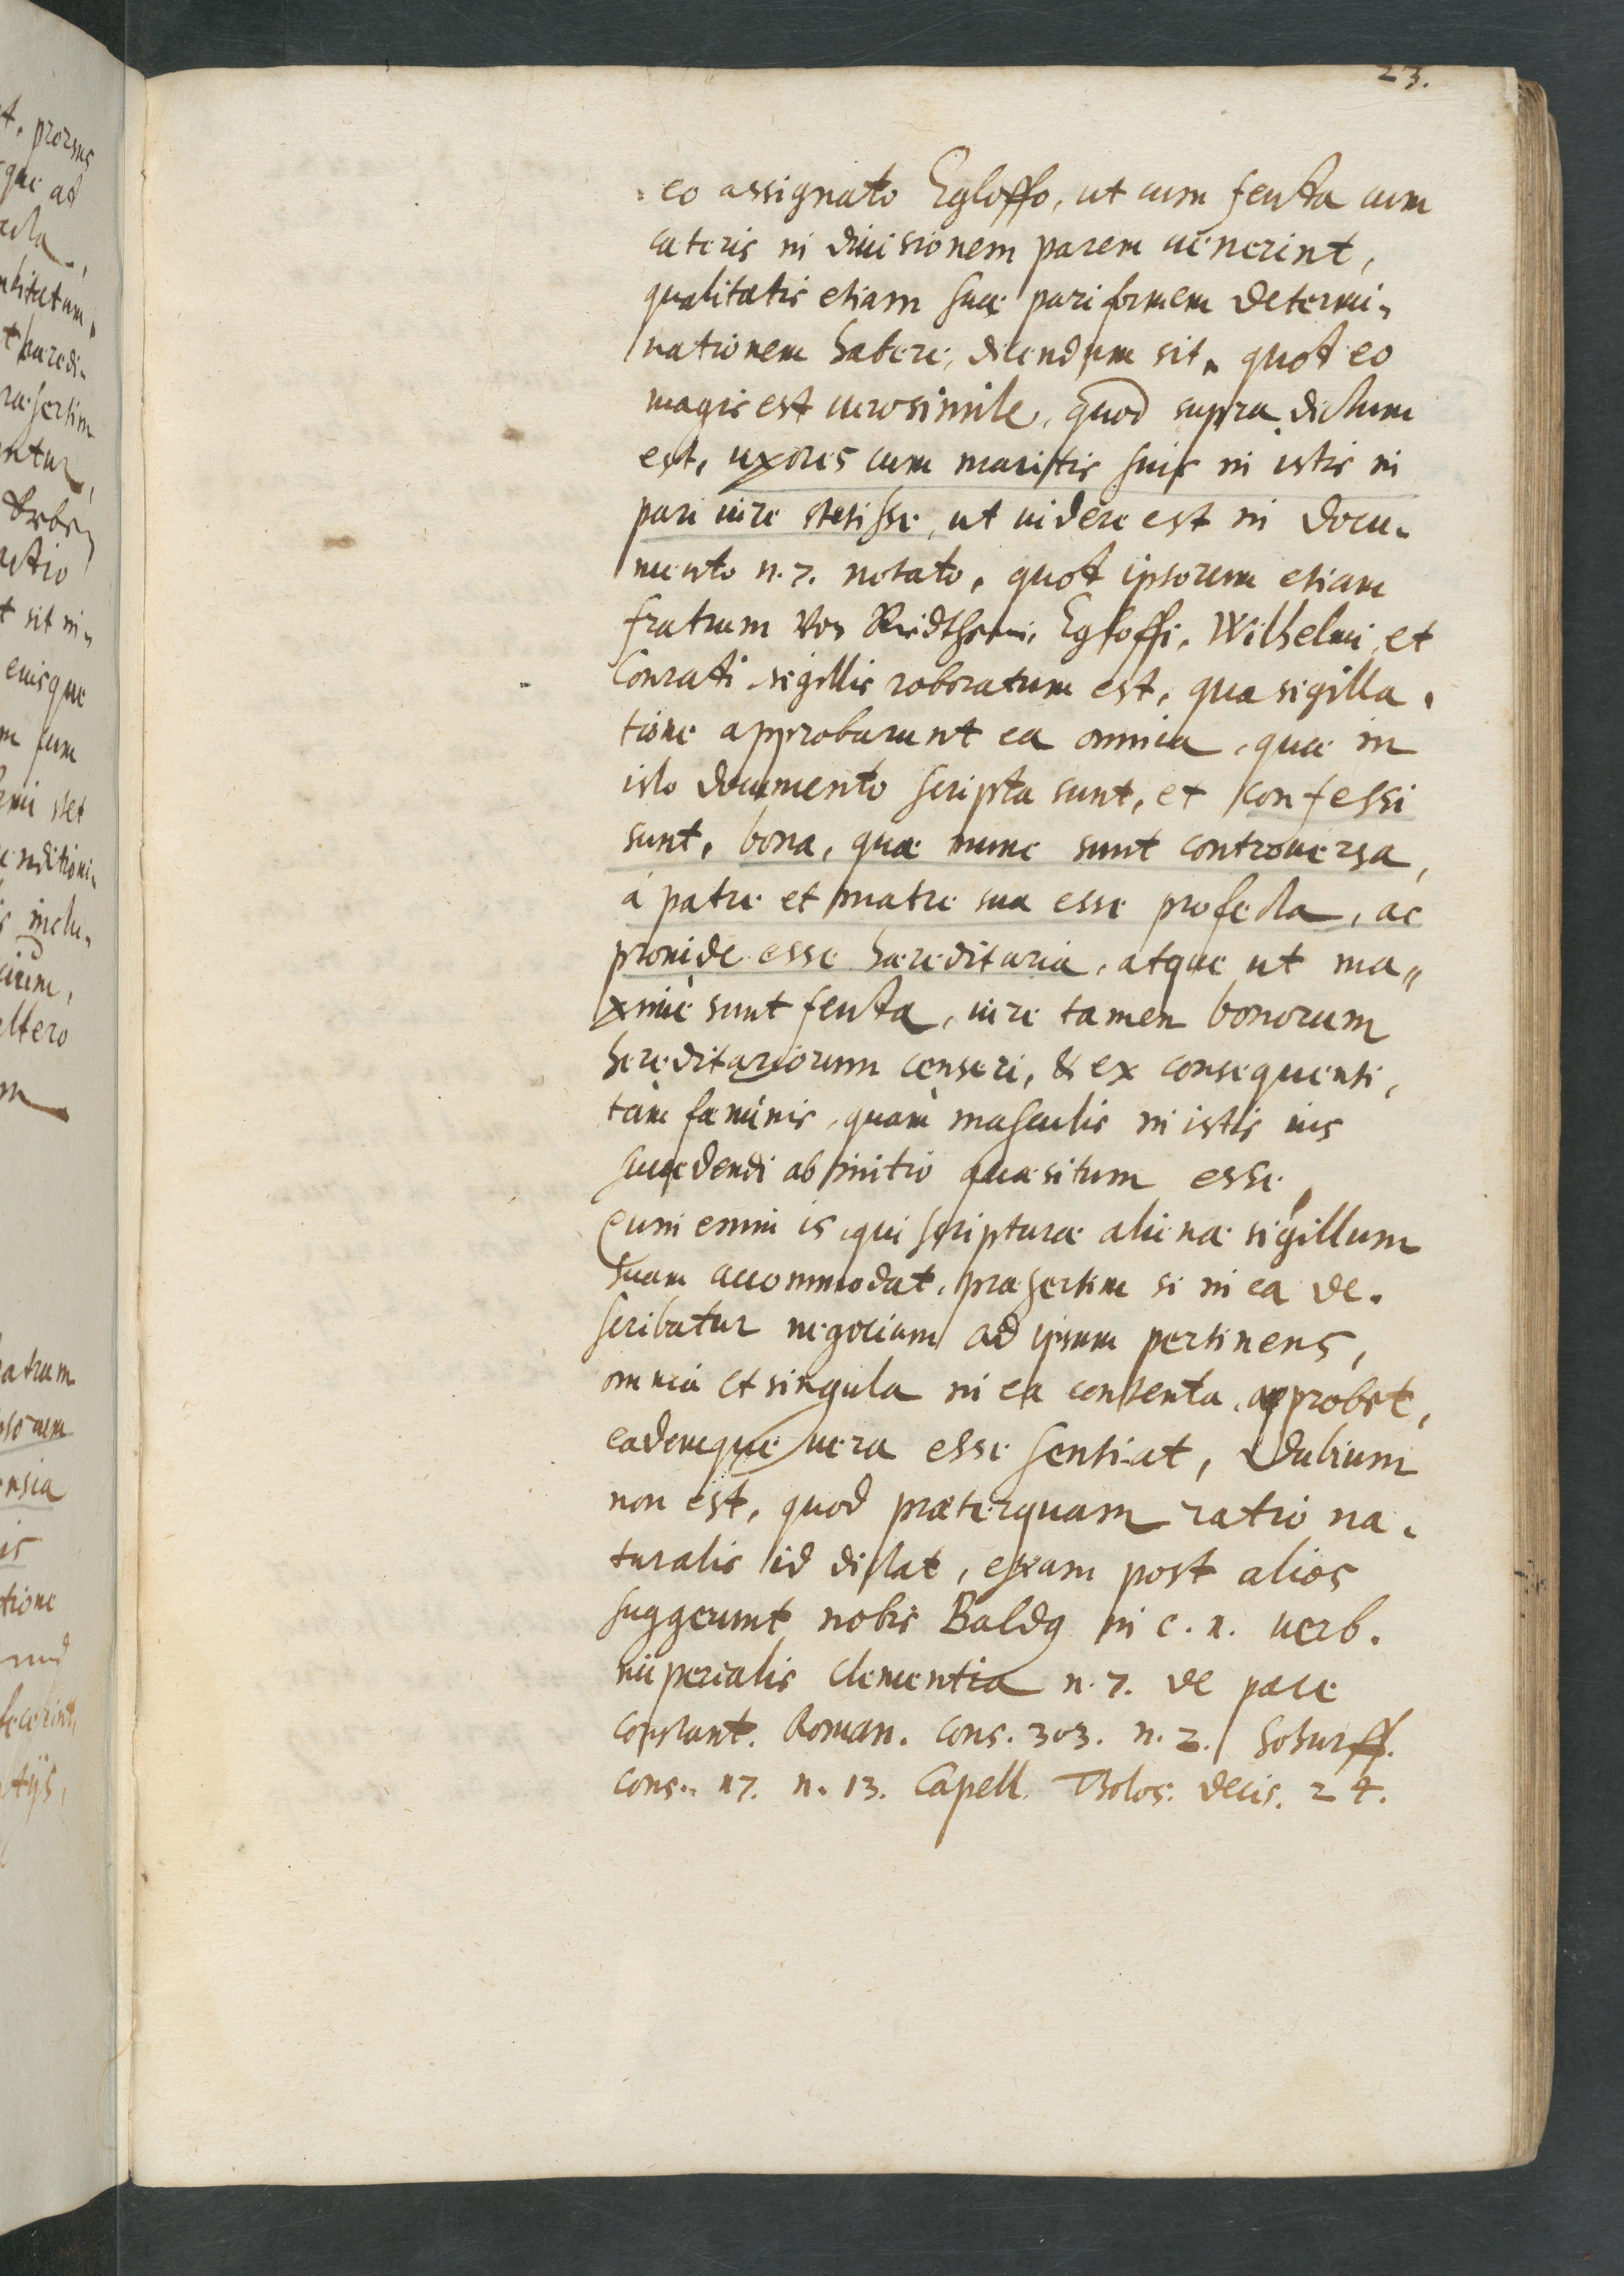 23.
eo assignato Egloffo, ut cum feuda cum
cæteris in diuisionem parem uenerint,
qualitatis etiam suæ pariformem determi-
nationem habere, dicendum sit. quod eo
magis est uerosimile, quod supra dictum
est, uxores cum maritis suis in istis in
pari iure stetisse, ut uidere est in docu-
mento n. 7. notato, quod ipsorum etiam
fratrum von Riedtheim, Egloffi, Wilhelmi, et
Conradi sigillis roboratum est, qua sigilla-
tione approbarunt ea omnia, quæ in
isto documento scripta sunt, et confessi
sunt, bona, quæ nunc sunt controuersa,
á patre et matre sua esse profecta, ac
proinde esse hæreditaria, atque ut ma-
ximè sunt feuda, iure tamen bonorum
hereditariorum censeri, & ex consequenti,
tàm fæminis, quàm masculis in istis ius
succedendi ab initio quæsitum esse.
Cum enim is, qui scripturæ alienæ sigillum
suum accommodat, præsertim si in ea de-
scribatur negocium ad ipsum pertinens,
omnia et singula in ea contenta approbet,
eademque uera esse sentiat, dubium
non est, quod præterquam ratio na-
turalis id dictat, etiam post alios
suggerunt nobis Bald9 in c. 1. uerb.
imperialis clementia n. 7. de pace
constant. Roman. cons. 303. n. 2. Schurff.
cons. 17. n. 13. Capell. Tholos. decis. 24.